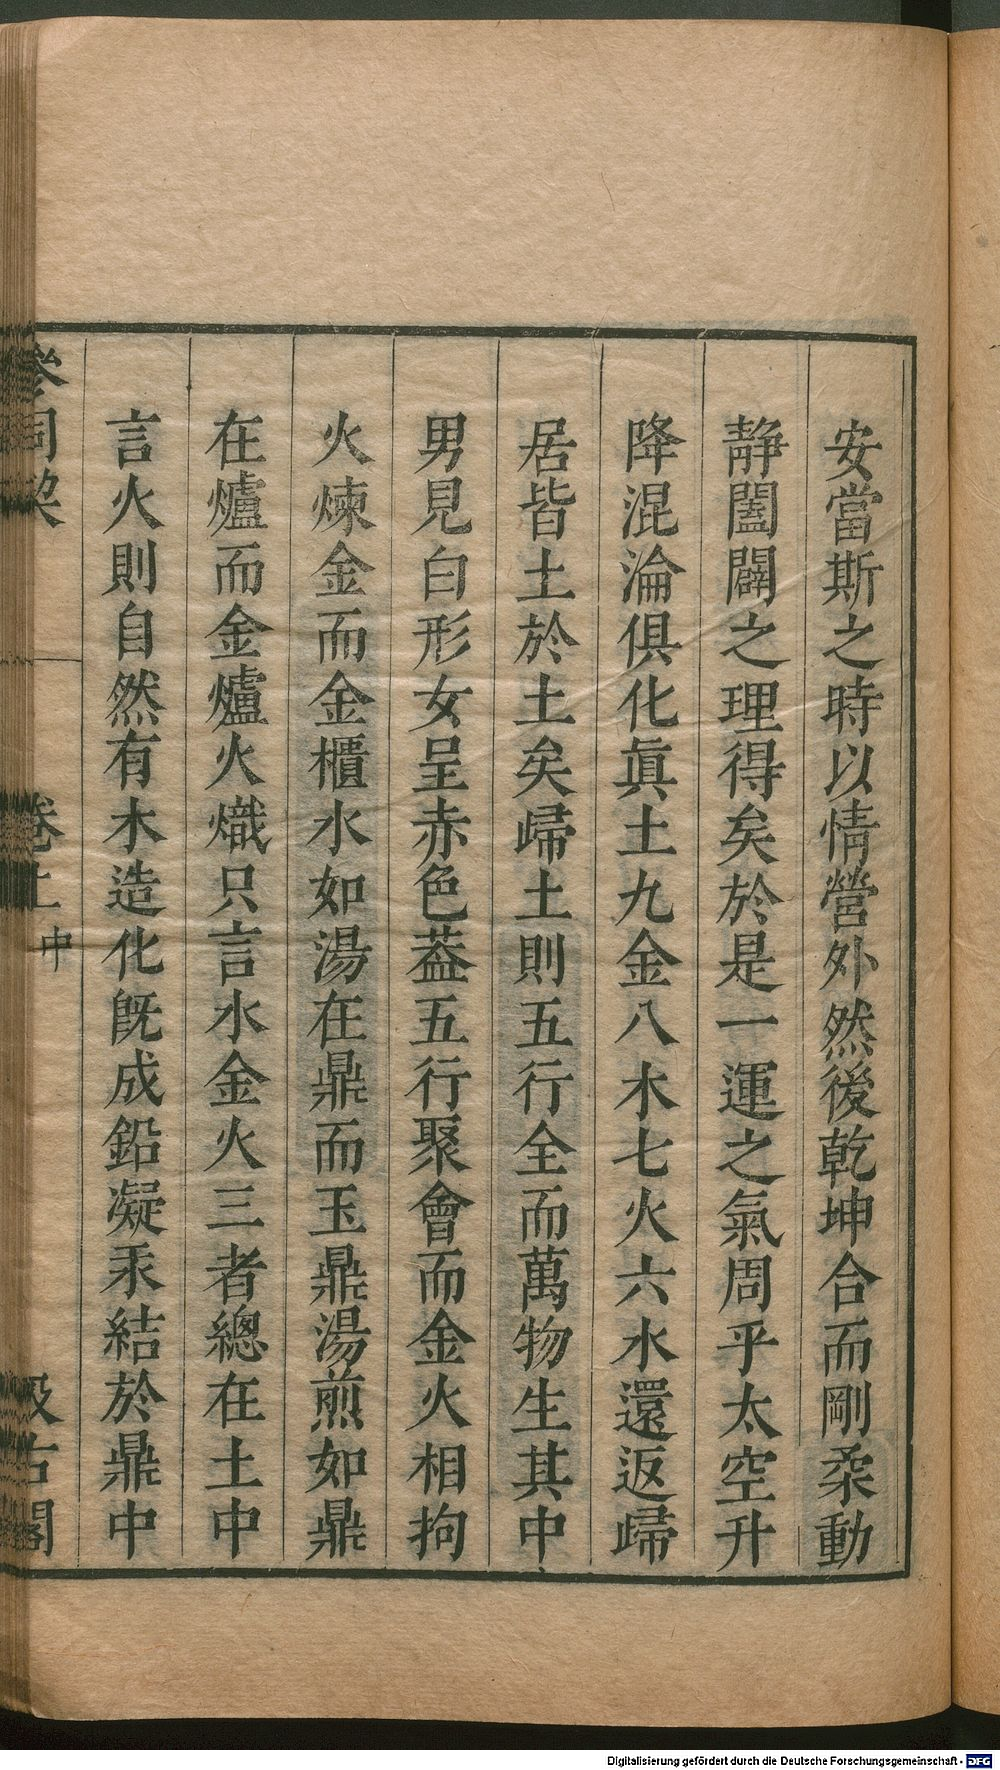 安當斯之時以情營外然後乾坤合而剛柔動
靜闔闢之理得矣於是一運之氣周乎太空升
降混淪俱化眞土九金八木七火六水還返歸
居皆土於土矣歸土則五行全而萬物生其中
男見白形女呈赤色葢五行聚會而金火相拘
火煉金而金櫃水如湯在鼎而玉鼎湯煎如鼎
在爐而金爐火熾只言水金火三者總在土中
言火則自然有木造化旣成鉛凝汞結於鼎中
參同契
卷上 中
汲古閣
Digitalisierung gefördert durch die Deutsche Forschungsgemeinschaft - DFG